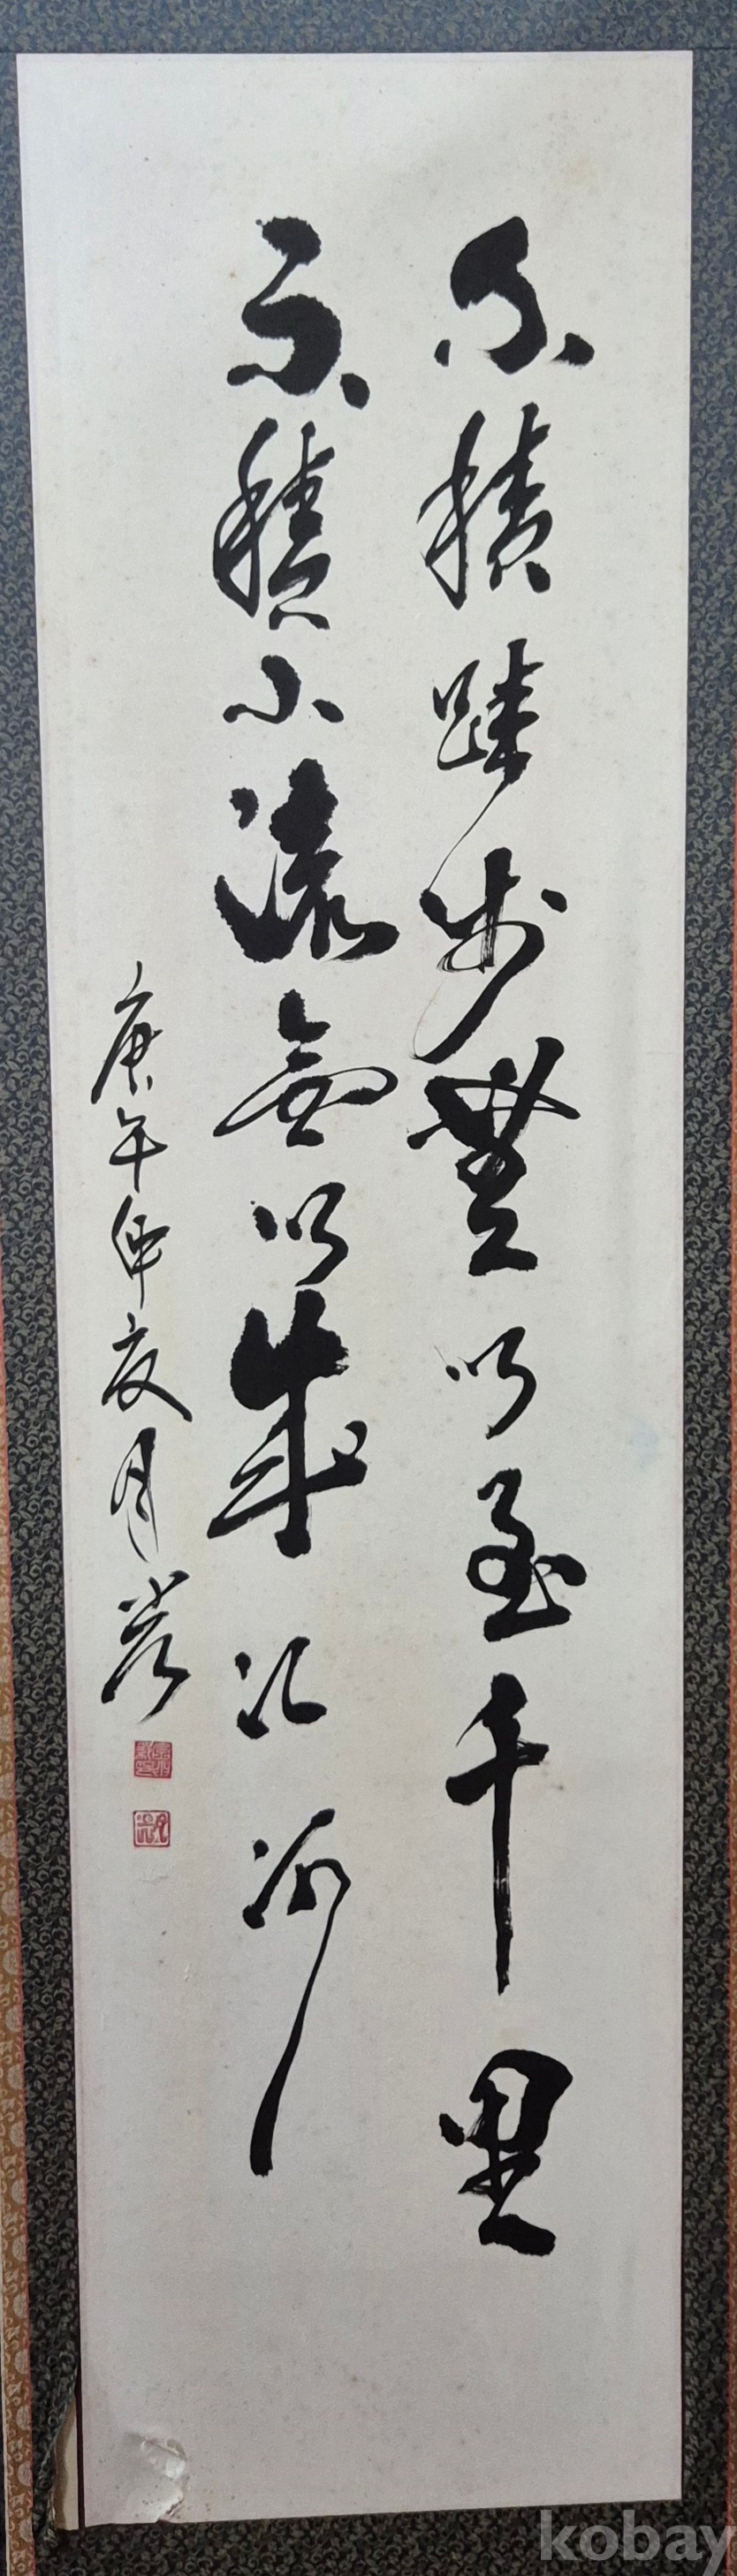 不積跬步無以至千里
不積小流無以成江河
庚午仲夏月岩
kobay